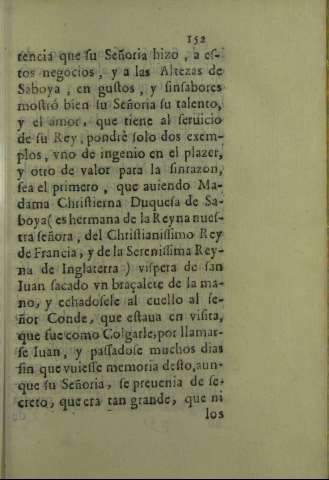 152
tencia que su Señoria hizo, a es-
tos negocios, y a las Altezas de
Saboya, en gustos, y sinsabores
mostrò bien su Señoria su talento,
y el amor, que tiene al seruicio
de su Rey, pondrè solo dos exem-
plos, vno de ingenio en el plazer,
y otro de valor para la sinrazon,
sea el primero, que auiendo Ma-
dama Christierna Duquesa de Sa-
boya (es hermana de la Reyna nues-
tra señora, del Christianissimo Rey
de Francia, y de la Serenissima Rey-
na de Inglaterra) vispera de san
Iuan sacado vn braçalete de la ma-
no, y echadosele al cuello al se-
ñor Conde, que estaua en visita,
que fue como Colgarle, por llamar-
se Iuan, y passadose muchos dias
sin que vuiesse memoria desto, aun-
que su Señoria, se preuenia de se-
creto, que era tan grande, que ni
los